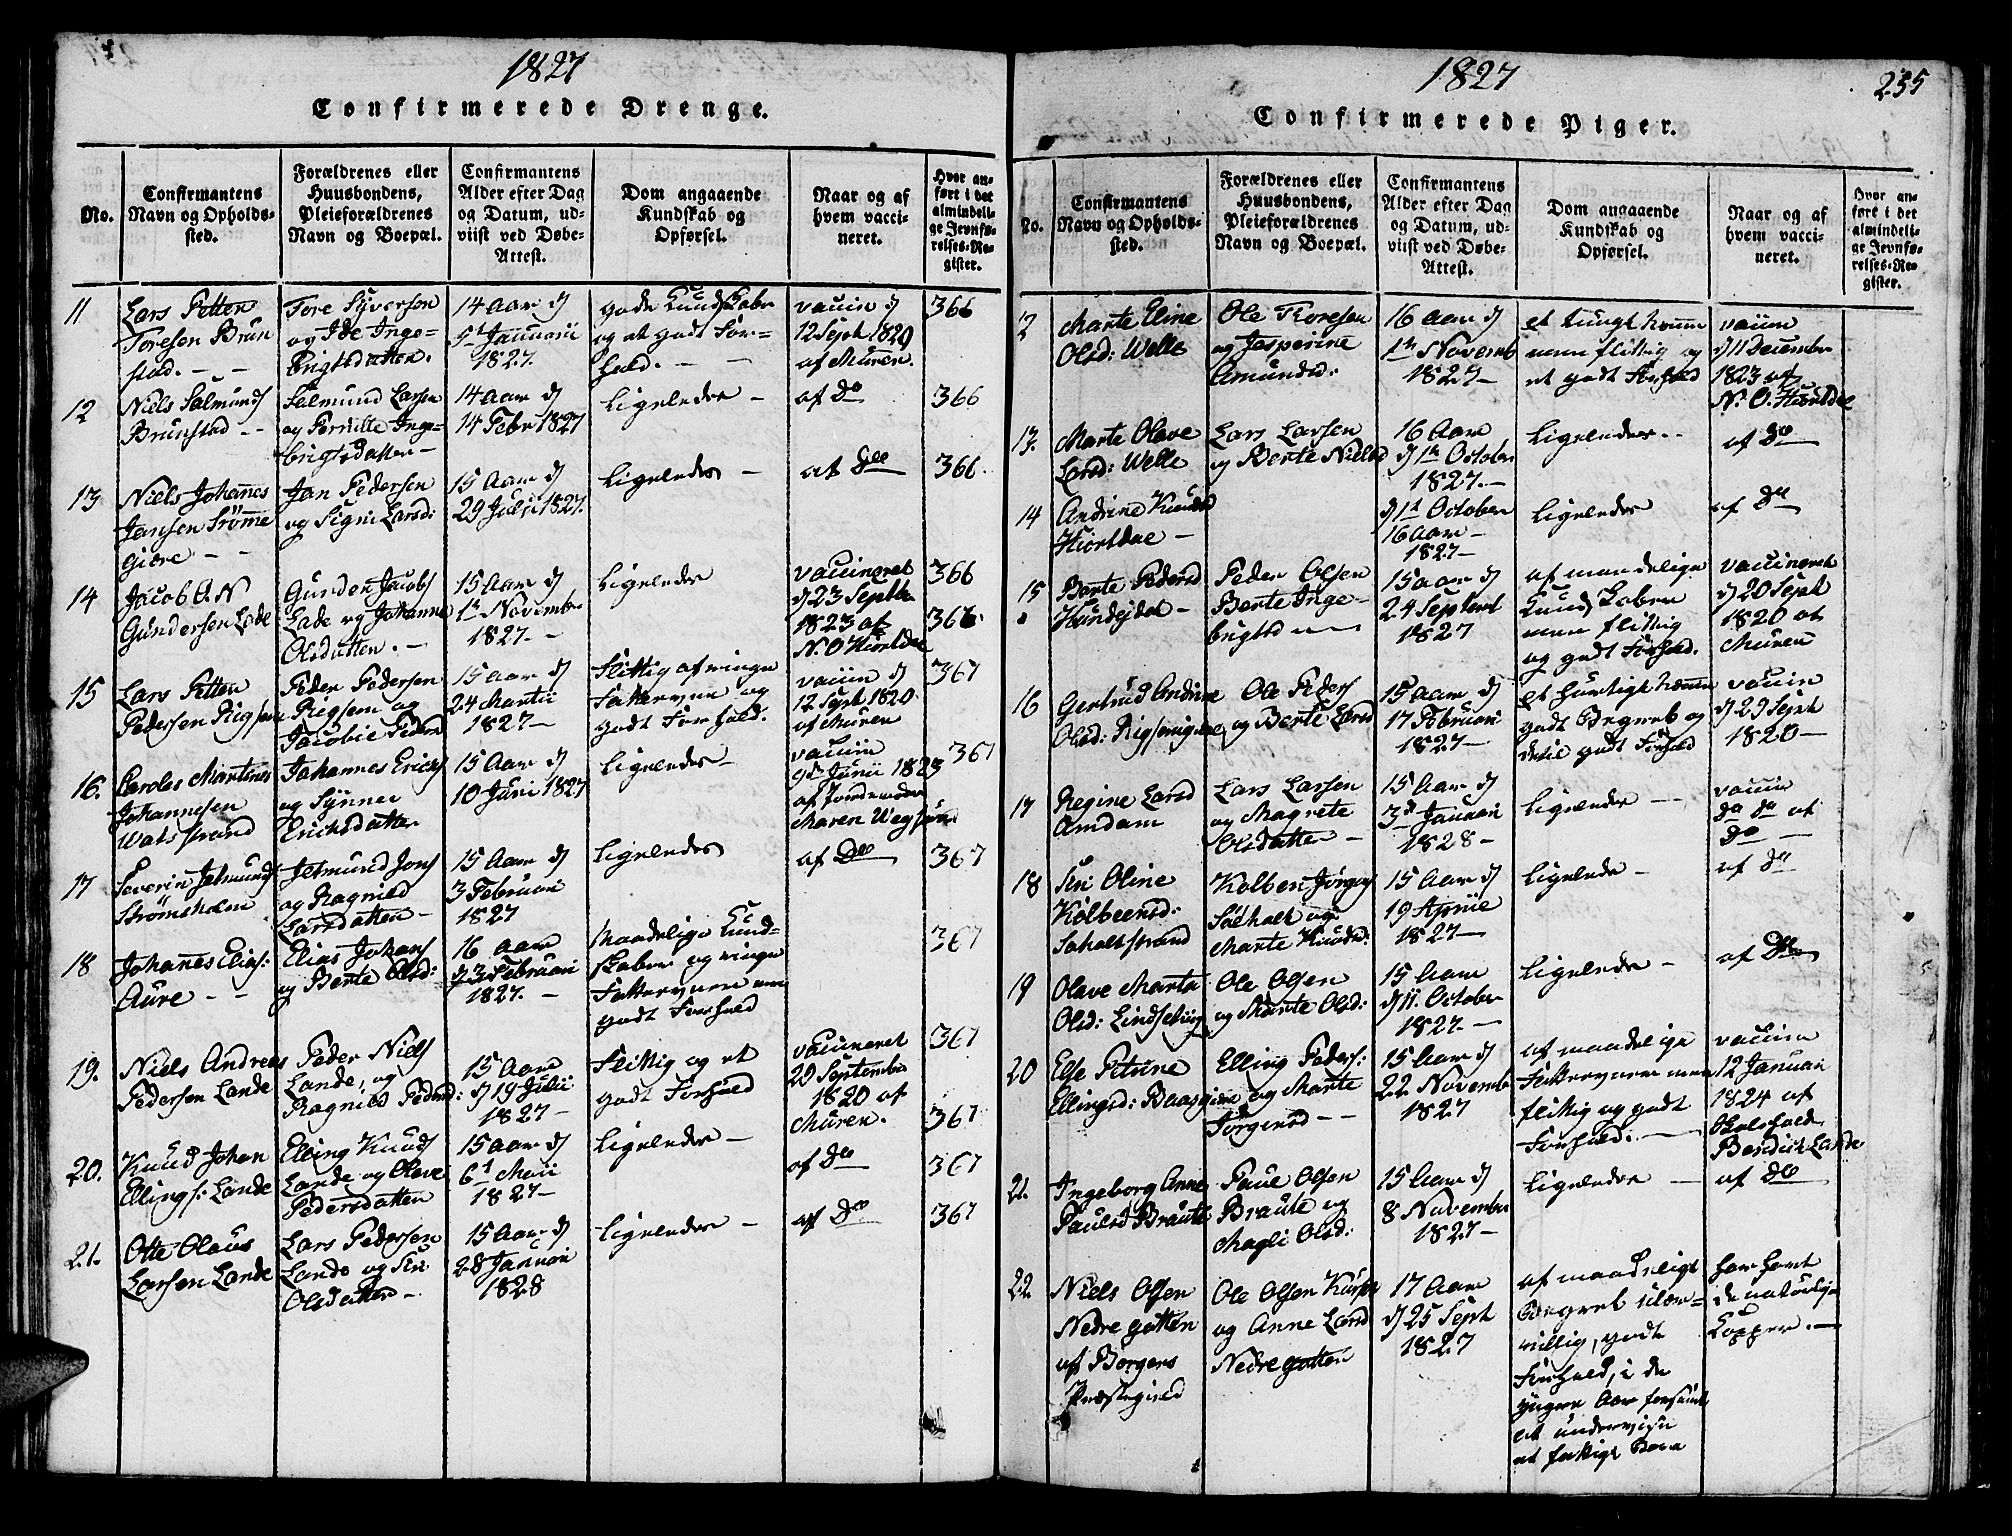 1827
Confirmerede Drenge.
No.
Confirmantens
Navn og Opholds-
sted.
Forældrenes eller
Huusbondens,
Pleieforældrenes
Navn og Boepæl.
Confirmantens
Alder efter Dag
og Datum, ud-
viist ved Døbe-
Attest.
Dom angaaende
Kundskab og
Opførsel.
Naar og af
hvem vacci-
neret.
Hvor an-
ført i det
almindeli-
ge Jevnfø-
relses-Re-
gister.
11
Lars Petter
Toresen Brun
stad. - -
Tore Syversen
og Ide Inge-
brigtsdatter.
14 Aar d
5t Januari
1827.
gode Kundskaber
og et godt For-
hold. -
vaccin d
12 Sept 1820
af Muren.
366
12
Niels Salmunds
Brunstad - -
Salmund Larsen
og Pernille Inge-
brigtsdatter -
14 Aar d
14 Febr 1827
Ligeledes -
af Do
366
13
Niels Johannes
Jansen Strømme
giære - -
Jan Pedersen
og Signi Larsd:
15 Aar d
29 Juli 1827.
Ligeledes -
af Do
366.
14
Jacob A N
Gundersen Lade
Gunder Jacobs
Lade og Johanne
Olsdatter. -
15 Aar d
1t Novembr
1827. -
Ligeledes
vaccineret
d 23 Septbr
1823 af
N. O Hiortdal
366
366.
15
Lars Petter
Pedersen Rigsem
Peder Pedersen
Rigsem og
Jacobie Peders
15 Aar d
24 Martii
1827 -
Flittig af ringe
Fatteevne og
godt Forhold.
vaccin d
12 Sept. 1820
af Muren
367
16.
Caroles Martinus
Johannesen
Watsstrand
Johannes Ericks
og Synner
Ericksdatter
15 Aar d
10 Juni 1827
Ligeledes -
vaccin
9d Junii 1823
af Jordemoder
Maren Wegsund
367
17
Severin Jetmunds
Strømsholm
Jetmund Jons
og Ragnild
Larsdatter -
15 Aar d
3 Februari
1827
Ligeledes
af Do
367
18
Johanes Elias:
Aure - -
Elias Johans
og Berte Olsd:
16 Aar
d 3 Februari
1827. -
Maadelige Kund-
skaber og ringe
Fatteevne men
godt Forhold
367
19.
Niels Andreas
Pedersen Lande
Peder Niels
Lande, og
Ragnild Pedersd:
15 Aar
d 19 Julii
1827 -
Flittig og et
godt Forhold
vaccineret
20 Septembr
1820 af
Muren.
367
20.
Knud Johan
Ellings: Lande
Elling Knuds
Lande og Olave
Pedersdatter
15 Aar d
6t Maii
1827 -
Ligeledes -
af Do
367
367
21.
Otte Olaus
Larsen Lande
Lars Pedersen
Lande og Siri
Olsdatter -
15 Aar d
28 Januari
1828
Ligeledes -
af Do
367
1827
235
Confirmerede Piger.
No.
Confirmantens
Navn og Opholds-
sted.
Forældrenes eller
Huusbondens,
Pleieforældrenes
Navn og Boepæl.
Confirmantens
Alder efter Dag
og Datum, ud-
viist ved Døbe-
Attest.
Dom angaaende
Kundskab og
Opførsel.
Naar og af
hvem vacci-
neret.
Hvor an-
ført i det
almindeli-
ge Jevnfø-
relses-Re-
gister.
12
Marte Eline
Olsd: Welle
Ole Toresen
og Jasperine
Amundsd:
16 Aar d
1t Novemb
1827 -
et tungt Nemme
men flittig og
et godt Forhold
vaccin
d 11 Decembr
1823 af
N. O. Hiortdal
13.
Marte Olave
Larsd: Welle
Lars Larsen
og Berte Nielsd
16 Aar
d 1t October
1827. -
Ligeledes. -
af Do
14
Andrine Knudsd
Hiortdal -
d 1t October
16 Aar -
1827 -
Ligeledes
af Do
15
Berte Pedersd
Hundejdet -
Peder Olsen
Berte Inge-
brigtsd
15 Aar d
24 Septbr
1827
af maadelige
Kundskaber
men flittig
og godt Forhold.
vaccineret
d 20 Sept
1820 af
Muren
16
Gertrud Andrine
Olsd:
Ole Peders
og Berte Larsd
15 Aar d
17 Februari
1827 -
et hurtigt Nemme
godt Begreb og
dertil godt Forhold
vaccin
d 29 Sept
1820 -
17
Regine Larsd
Amdam
Lars Larsen
og Magrete
Olsdatter -
15 Aar d
3d Januari
1828 -
Ligeledes -
vaccin
do do af
Do -
18
Siri Oline
Kolbeensd:
Soholtstrand
Kolben Jørgens
Søeholt og
Marte Knudsd:
15 Aar d
19 Aprile
1827 -
Ligelede -
af Do
19
Olave Marta
Olsd: Lindsetvig
Ole Olsen
og Marte Olsd:
15 Aar
d 11. October
1827. -
Ligelede -
af Do
20
Else Petrine
Ellingsd: Baasgiære
Elling Peders:
og Marte
Jørgensd - -
15 Aar d
22 Novembr
1827
af maadelige
Fatteevne men
flittig og godt
Forhold. -
vaccin
12 Januari
1824 af
Skolehold.
Bendick Lande
21.
Ingeborg Anne
Paulsd Braute
Paul Olsen
Braute og
Magli Olsd:
15 Aar d
8 Novembr
1827 -
Ligeledes -
af Do
22
Niels Olsen
Nedregotten
af Borgens
Præstegield
Ole Olsen
og Anne Larsd
Nedregotten
17 Aar
d 25 Sept
1827
af maadeligt
Begreb, lære-
villig, godt
Forhold, i de
yngere Aar forsømt
et undervist
et fattigt Barn
har havt
de natürlige
Kopper. -